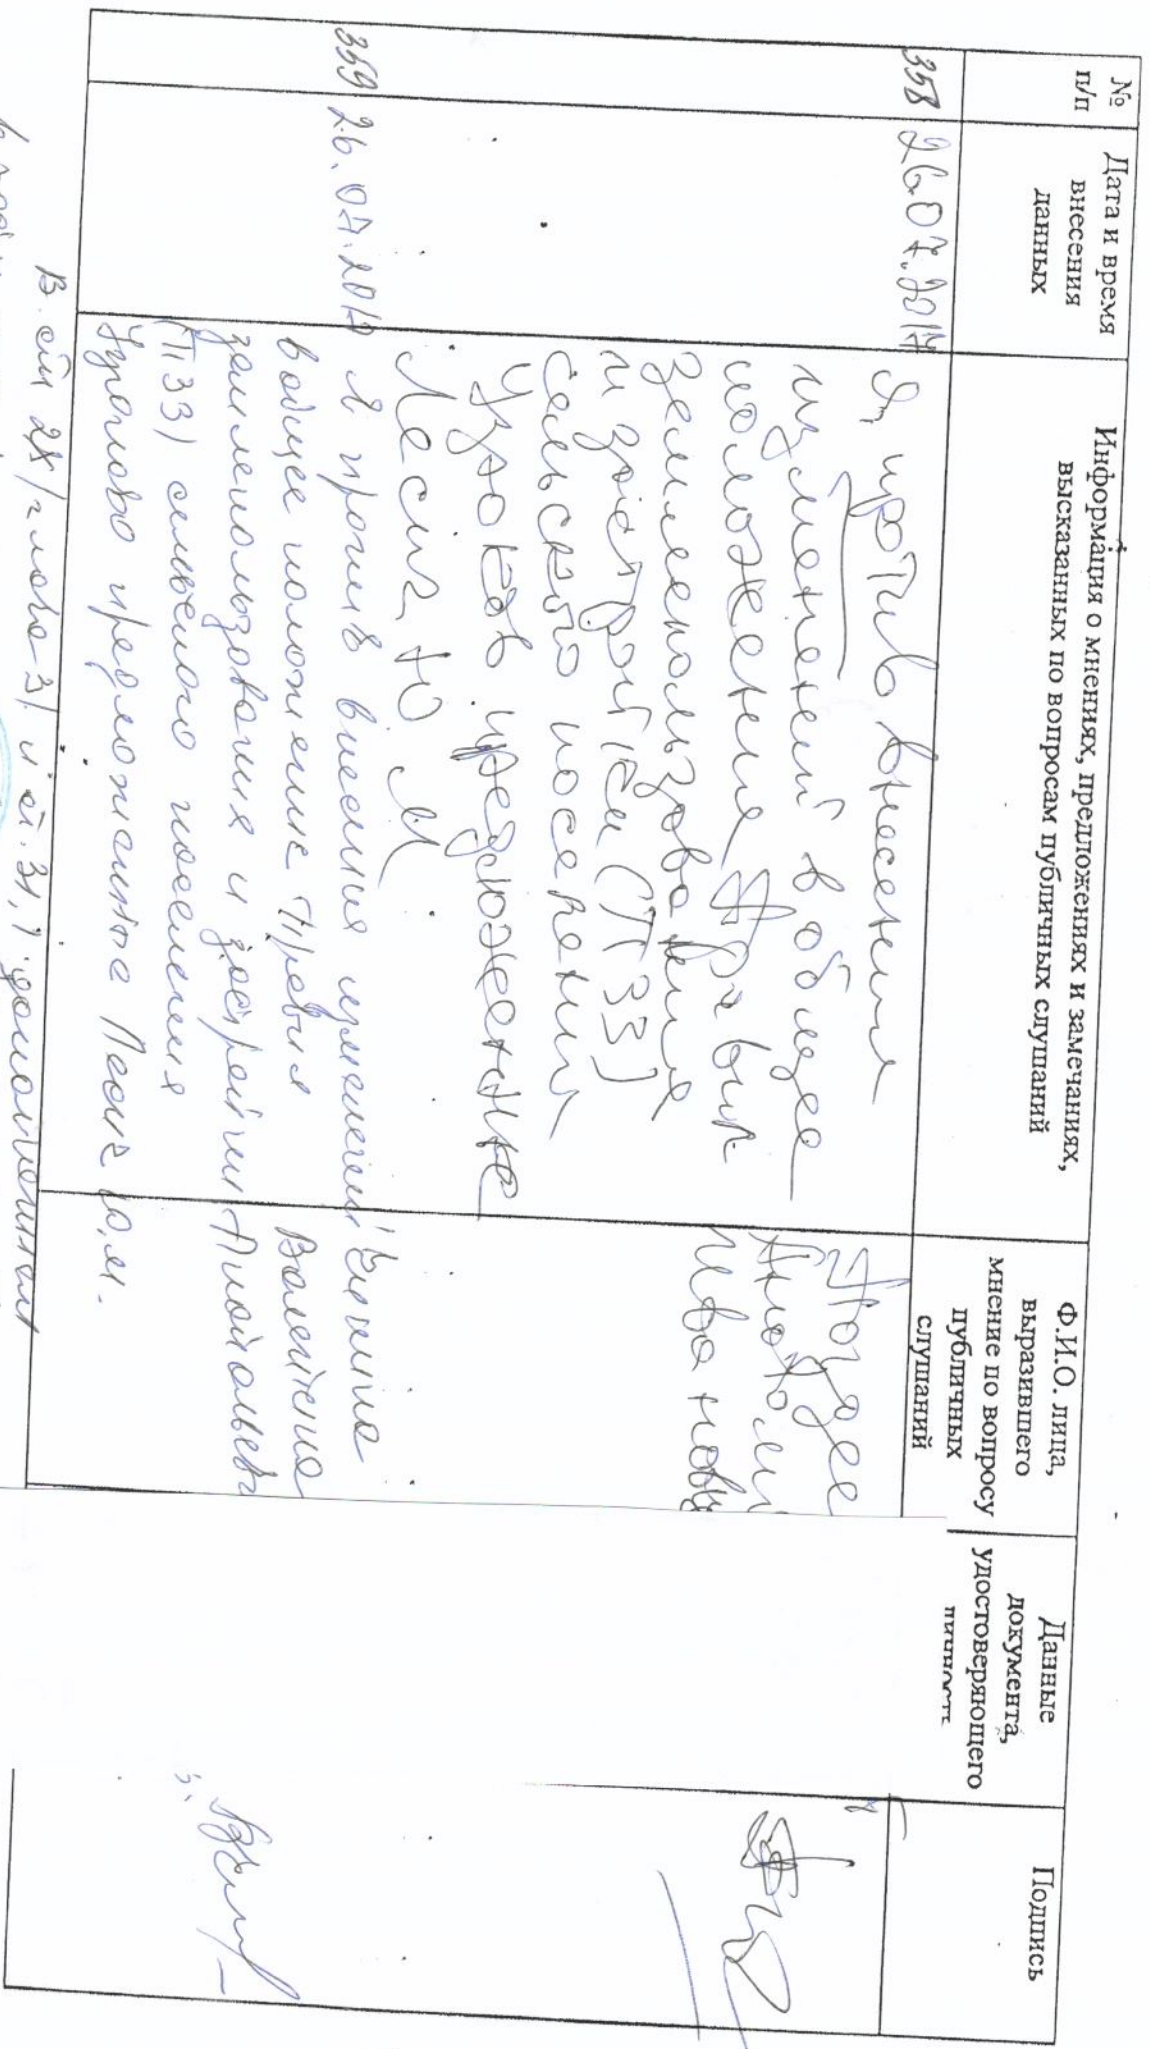 № п/п
Дата и время внесения данных
Информация о мнениях, предложениях и замечаниях, высказанных по вопросам публичных слушаний
Ф.И.О. лица, выразившего мнение по вопросу публичных слушаний
Данные документа, удостоверяющего личность
Подпись
358
26.07.2017
Я, против внесения
изменений в общее
положение Правил
Землепользования
и застройки (ПЗЗ)
сельского поселения
предложенные
Лесик Ю М
Анатолий
Иванович
359
26.07.2017
Я против внесения изменений
в общее положение Правил
землепользования и застройки
(ПЗЗ) сельского поселения
предложенные Лесик Ю.М.
Валентина
Анатольевна
В ст 28/глава 3/ и ст. 31,